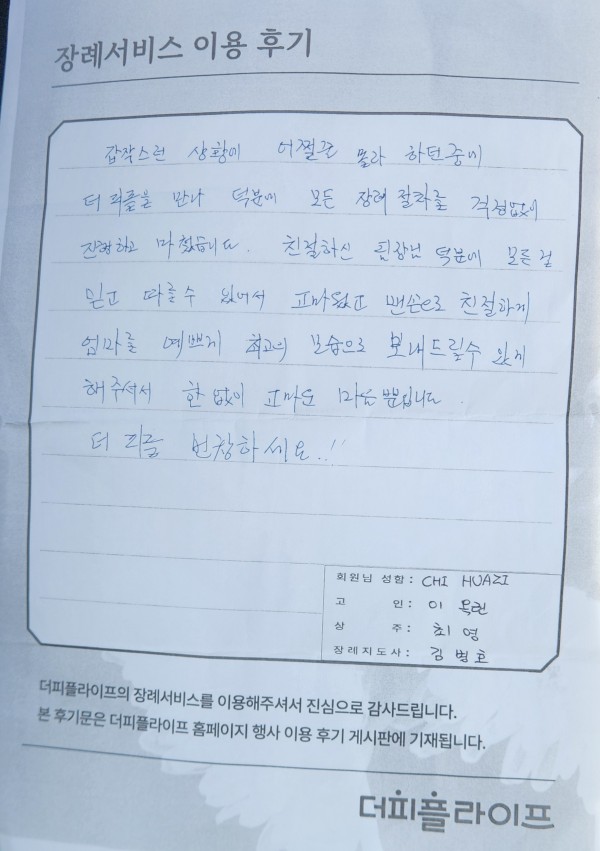 장례서비스 이용 후기
갑작스런 상황에 어쩔줄 몰라 하던중에
더 피플을 만나 덕분에 모든 장례 절차를 걱정없이
진행하고 마쳤습니다. 친절하신 팀장님 덕분에 모든걸
믿고 따를수 있어서 고마웠고 맨손으로 친절하게
엄마를 예쁘게 최고의 모습으로 보내드릴수 있게
해주셔서 한없이 고마운 마음뿐입니다.
더 피플 번창하세요.!!
회원님 성함: CHI HUAZI
고 인: 이옥란
상 주: 최영
장례지도사: 김병호
더피플라이프의 장례서비스를 이용해주셔서 진심으로 감사드립니다.
본 후기문은 더피플라이프 홈페이지 행사 이용 후기 게시판에 기재됩니다.
더피플라이프